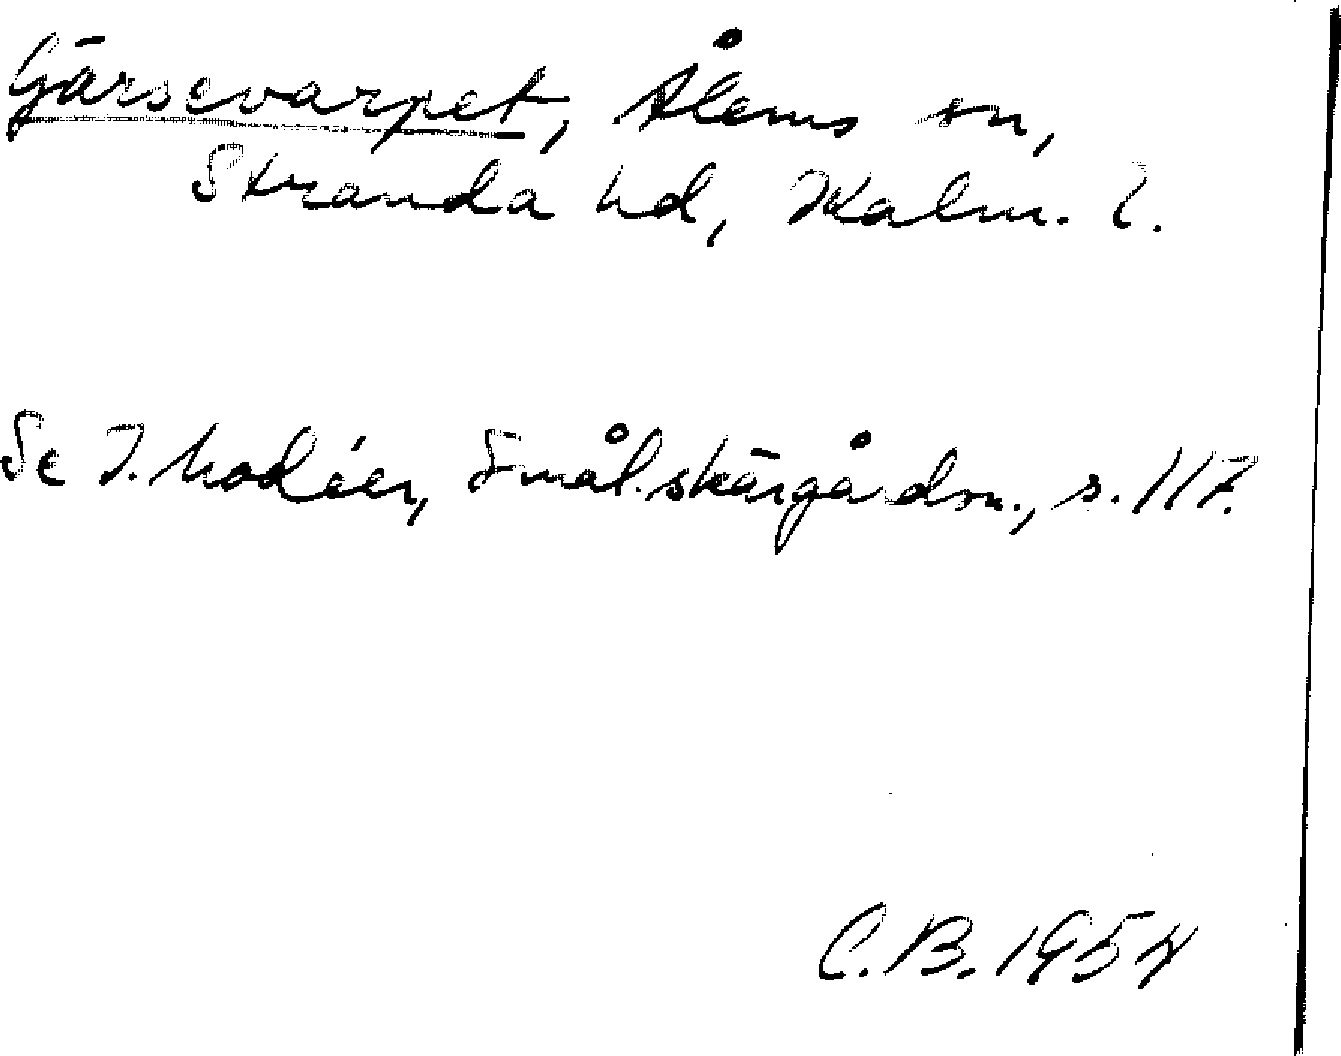 Gärsevarpet, Ålems sn,
Stranda hd, Kalm. l.
Se I. Modéer, Smål. skärgårdsn., s. 117.
C.B. 1954